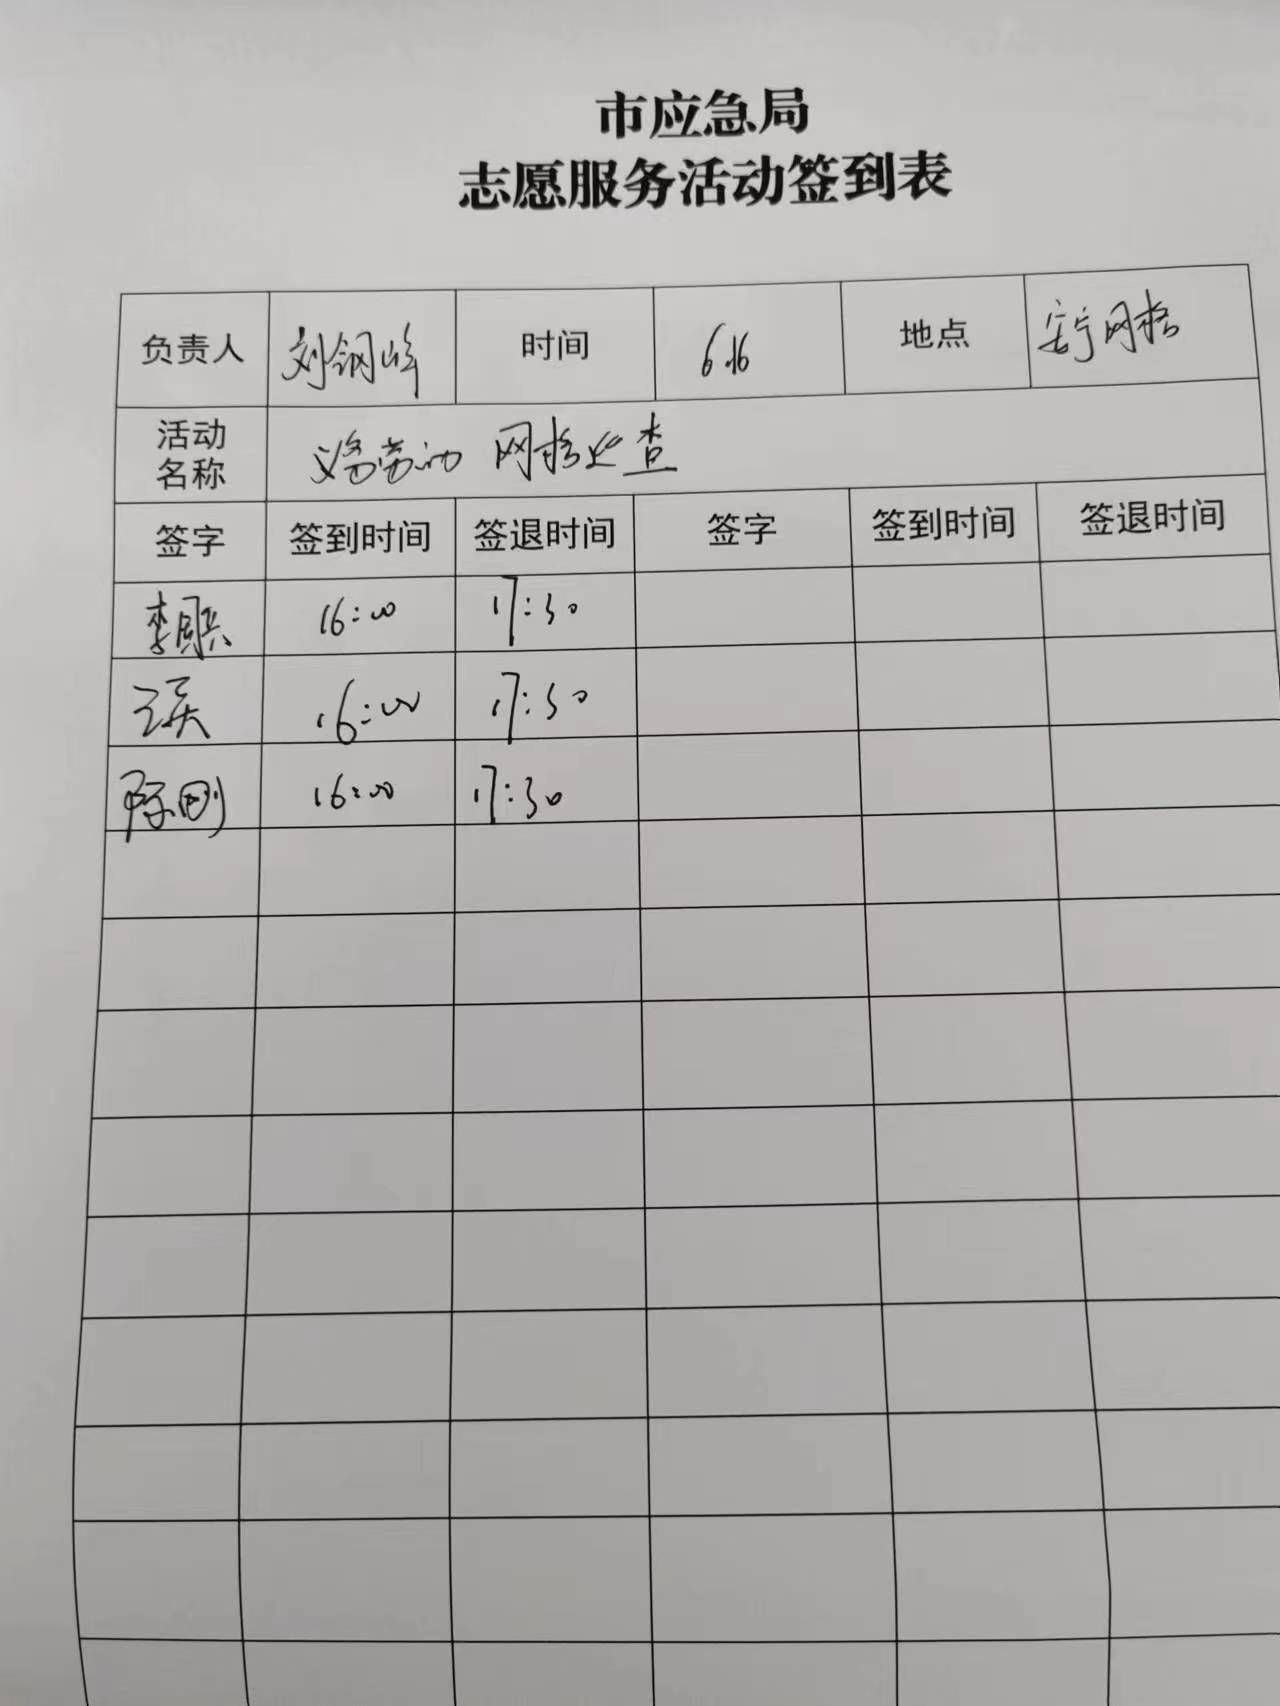 市应急局
志愿服务活动签到表
负责人 刘钢峰 时间 6.16 地点 安宁网格
活动名称 义务劳动 网格 查
签字 签到时间 签退时间 签字 签到时间 签退时间
李 16:00 17:30
16:00 17:30
陈刚 16:00 17:30